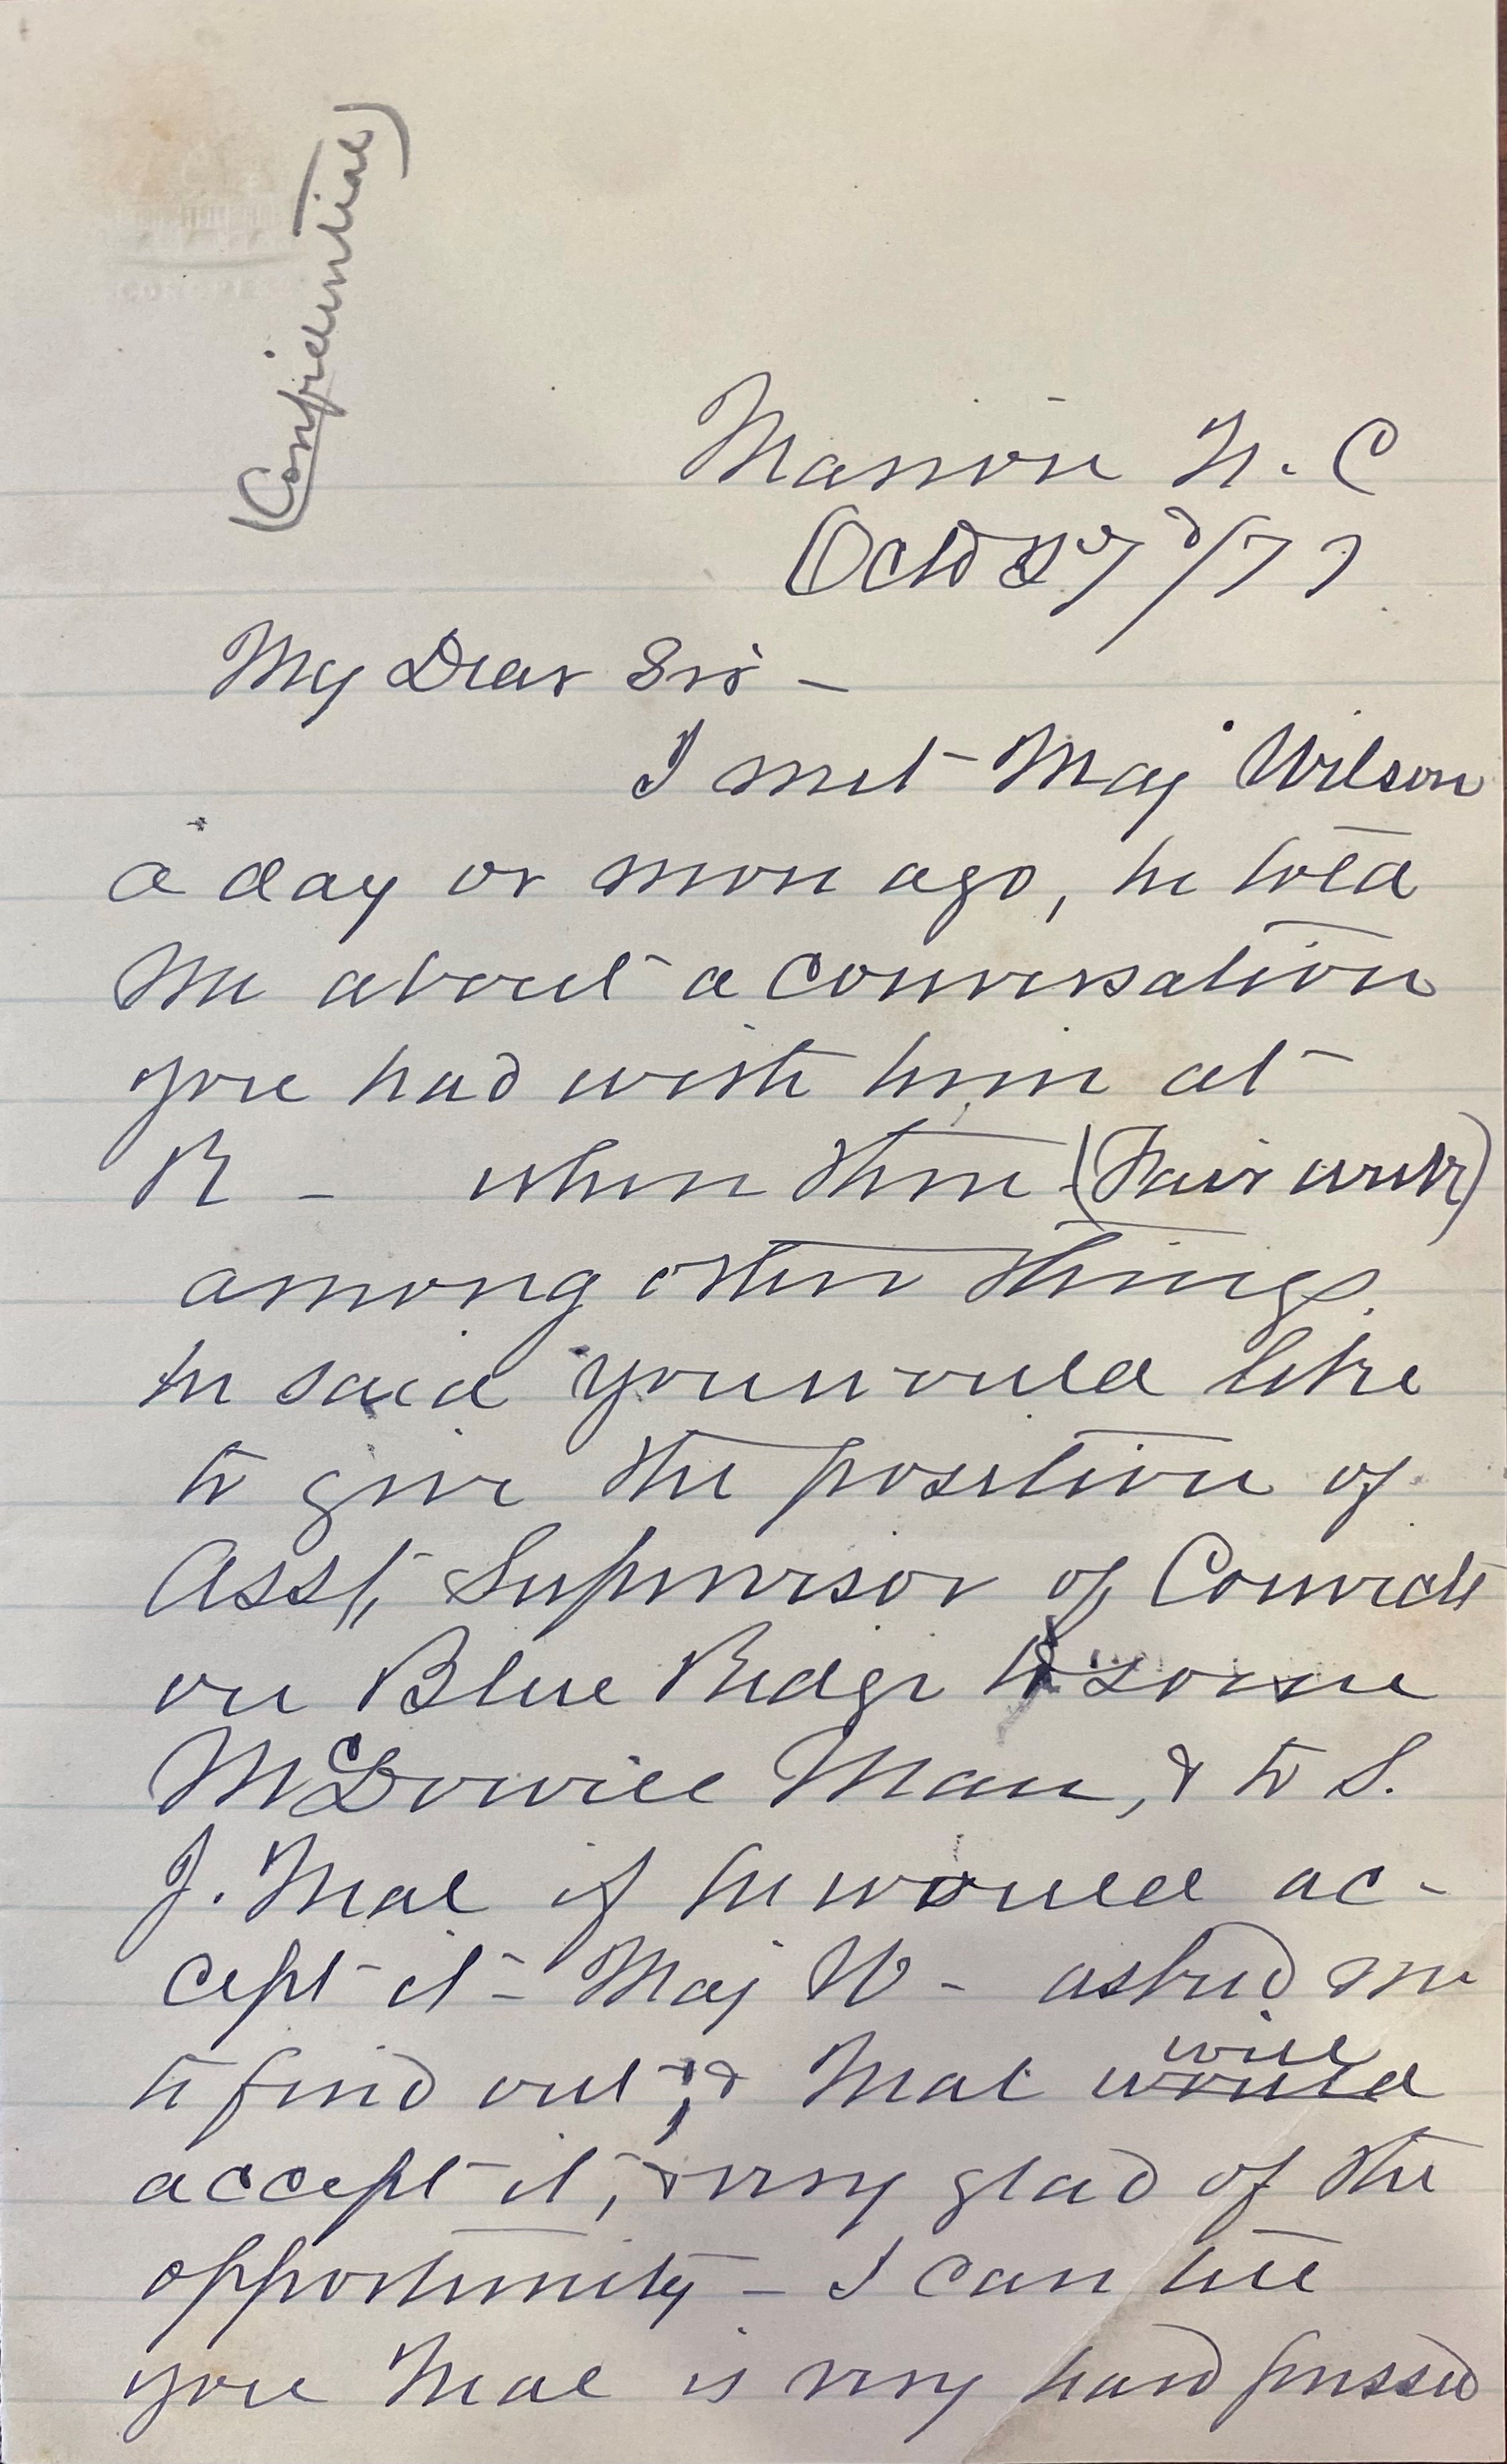 (Confidential)
Marion N. C
Octo 27 /77
My Dear Sir -
I met Maj Wilson
a day or more ago, he told
me about a conversation
you had with him at
R - when there (Fair week)
among other things
he said you would like
to give the position of
Asst, Supervisor of Convicts
on Blue Ridge to some
McDowell Man, & to S.
J. Neal if he would ac-
cept it - Maj W - asked me
to find out, & Neal will would
accept it, & very glad of the
opportunity - I can tell
you Neal is very hard pressed